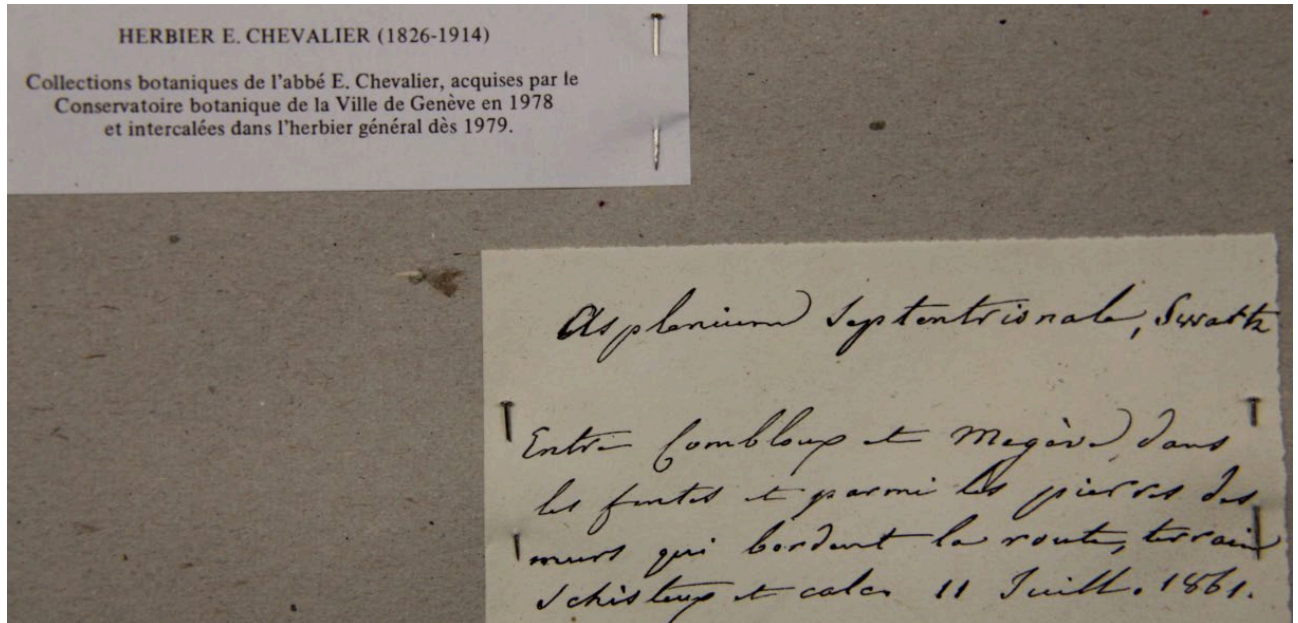 HERBIER E. CHEVALIER (1826-1914)
Collections botaniques de l'abbé E. Chevalier, acquises par le
Conservatoire botanique de la Ville de Genève en 1978
et intercalées dans l'herbier général dès 1979.
Asplenium Septentrionale, Swartz
Entre Combloux et Megève dans
les fentes et parmi les pierres des
murs qui bordent la route, terrain
Schisteux et calc. 11 Juill. 1861.